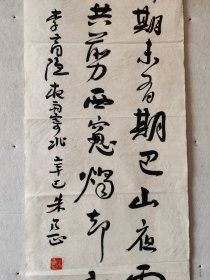 期未有期巴山夜雨
共剪西窗烛却
李商隐夜雨寄北 辛巳 朱乃正